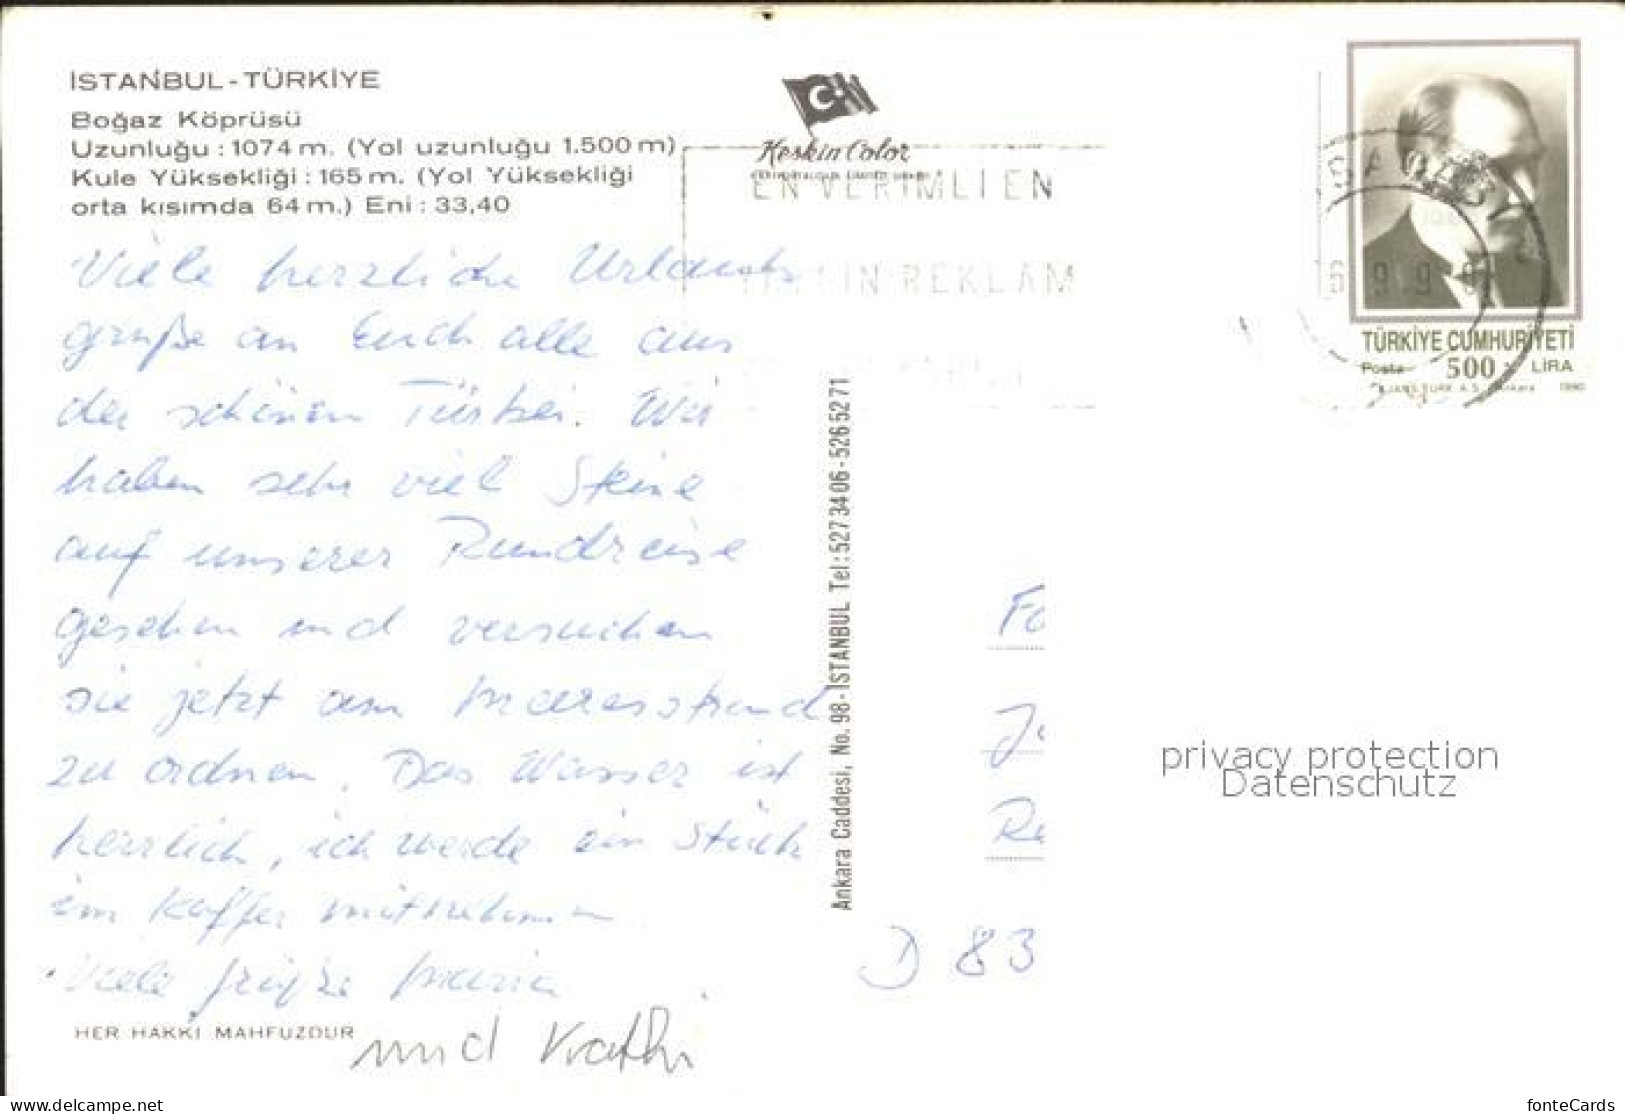 İSTANBUL-TÜRKİYE
Boğaz Köprüsü
Uzunluğu : 1074 m. (Yol uzunluğu 1.500 m)
Kule Yüksekliği : 165 m. (Yol Yüksekliği
orta kısımda 64 m.) Eni : 33,40
Keskin Color
EN VERIMLI EN
REKLAM
TÜRKİYE CUMHURİYETİ
Posta 500 LİRA
Viele herzliche Urlaubs
grüße an Euch alle aus
der schönen Türkei. Wir
haben sehr viel Steine
auf unserer Rundreise
gesehen und versuchen
sie jetzt am Meeresstrand
zu ordnen. Das Wasser ist
herrlich, ich werde ein Stück
im Koffer mitnehmen
Viele Grüße Maria
und Kathi
HER HAKKI MAHFUZDUR
Ankara Caddesi, No. 98 - İSTANBUL Tel : 527 34 06 - 526 52 71
Fo
Re
D 83
privacy protection
Datenschutz
www.delcampe.net
fonteCards